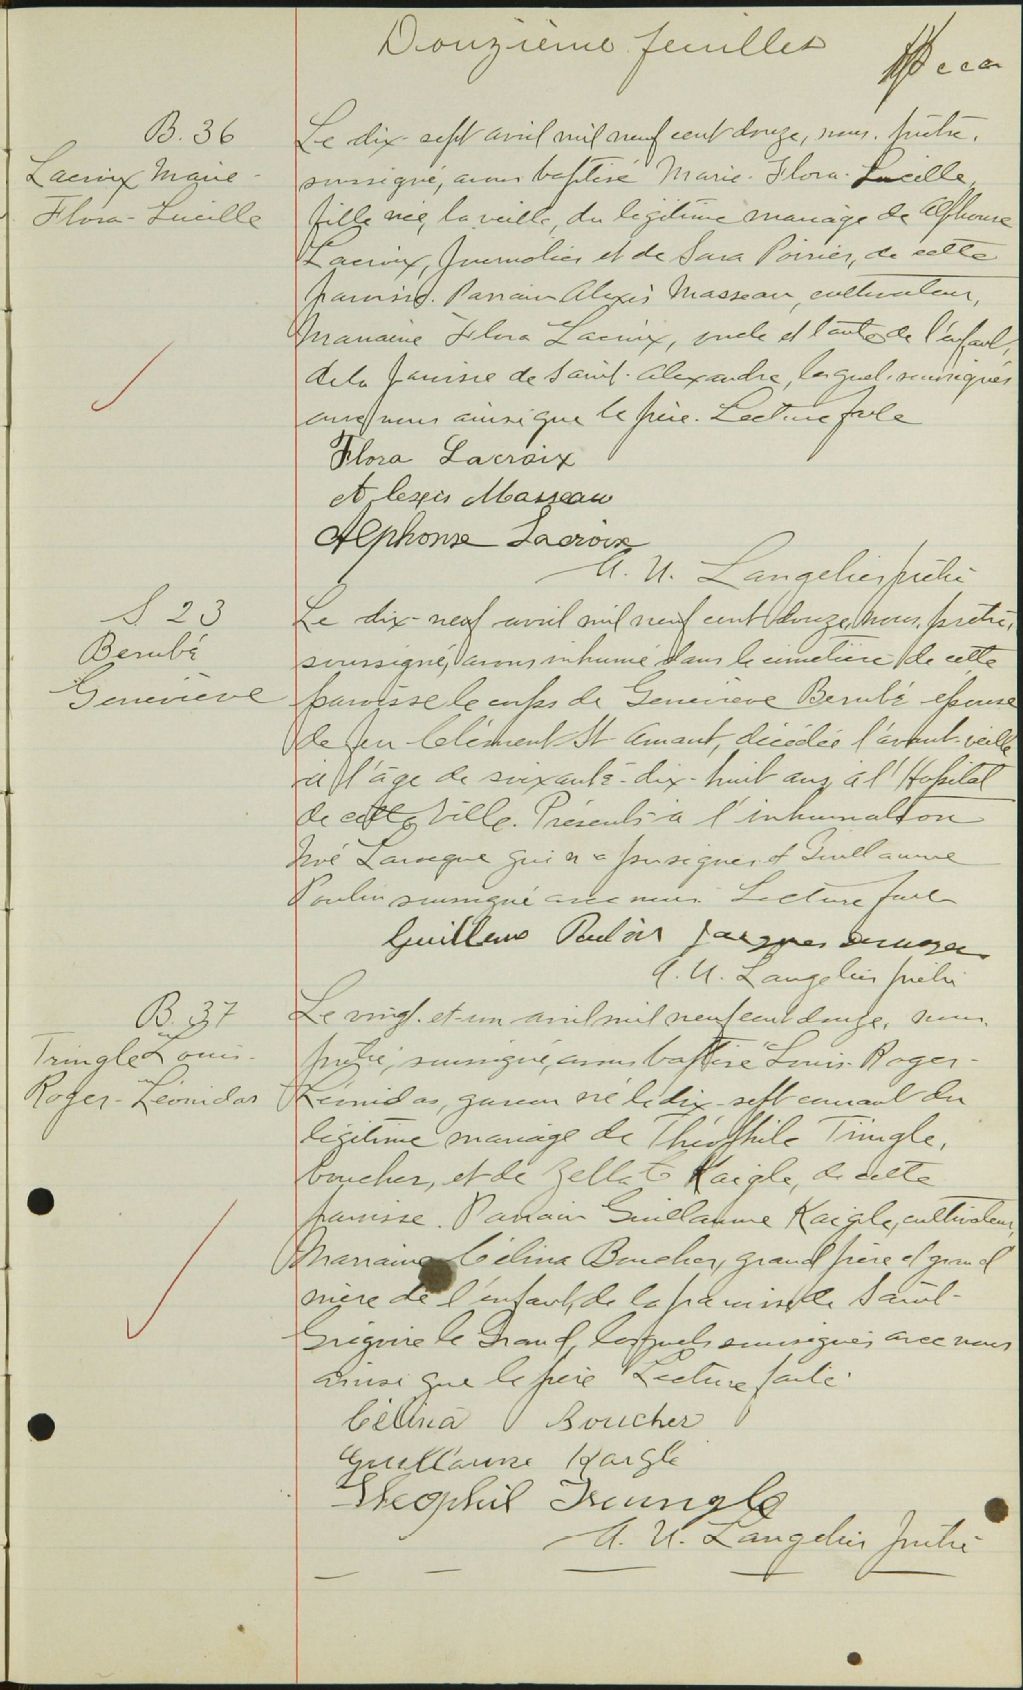 Douzième feuillet
B. 36
Lacroix Marie-
Flora-Lucille
Le dix-sept avril mil neuf cent douze, nous, prêtre,
soussigné, avons baptisé Marie-Flora-Lucille,
fille née, la veille, du légitime mariage de Alphonse
Lacroix, journalier et de Sara Poirier, de cette
paroisse. Parrain Alexis Masseau, cultivateur,
Marraine Flora Lacroix, oncle et tante de l'enfant,
de la paroisse de Saint-Alexandre, lesquels soussignés
avec nous ainsi que le père. Lecture faite
Flora Lacroix
Alexis Masseau
Alphonse Lacroix
A. U. Langelier prêtre
S 23
Berubé
Geneviève
Le dix-neuf avril mil neuf cent douze, nous, prêtre,
soussigné, avons inhumé dans le cimetière de cette
paroisse le corps de Geneviève Berubé épouse
de feu Clément St Amant, décédée l'avant-veille
à l'âge de soixante-dix-huit ans, à l'Hopital
de cette Ville. Présents à l'inhumation
Noé Larocque qui n'a pu signer et Guillaume
Poulin soussigné avec nous. Lecture faite
Guilleme Poulin Jacques
A. U. Langelier prêtre
B. 37
Tringle Louis-
Roger-Léonidas
Le vingt-et-un avril mil neuf cent douze, nous,
prêtre, soussigné, avons baptisé Louis-Roger-
Léonidas, garçon né le dix-sept courant du
légitime mariage de Théophile Tringle,
boucher, et de Zella Kaigle, de cette
paroisse. Parrain Guillaume Kaigle, cultivateur,
Marraine Célina Boucher, grand père et grand
mère de l'enfant, de la paroisse de Saint-
Grégoire le Grand, lesquels soussignés avec nous
ainsi que le père Lecture faite.
Célina Boucher
Guillaume Kaigle
Theophil Trungle
A. U. Langelier prêtre